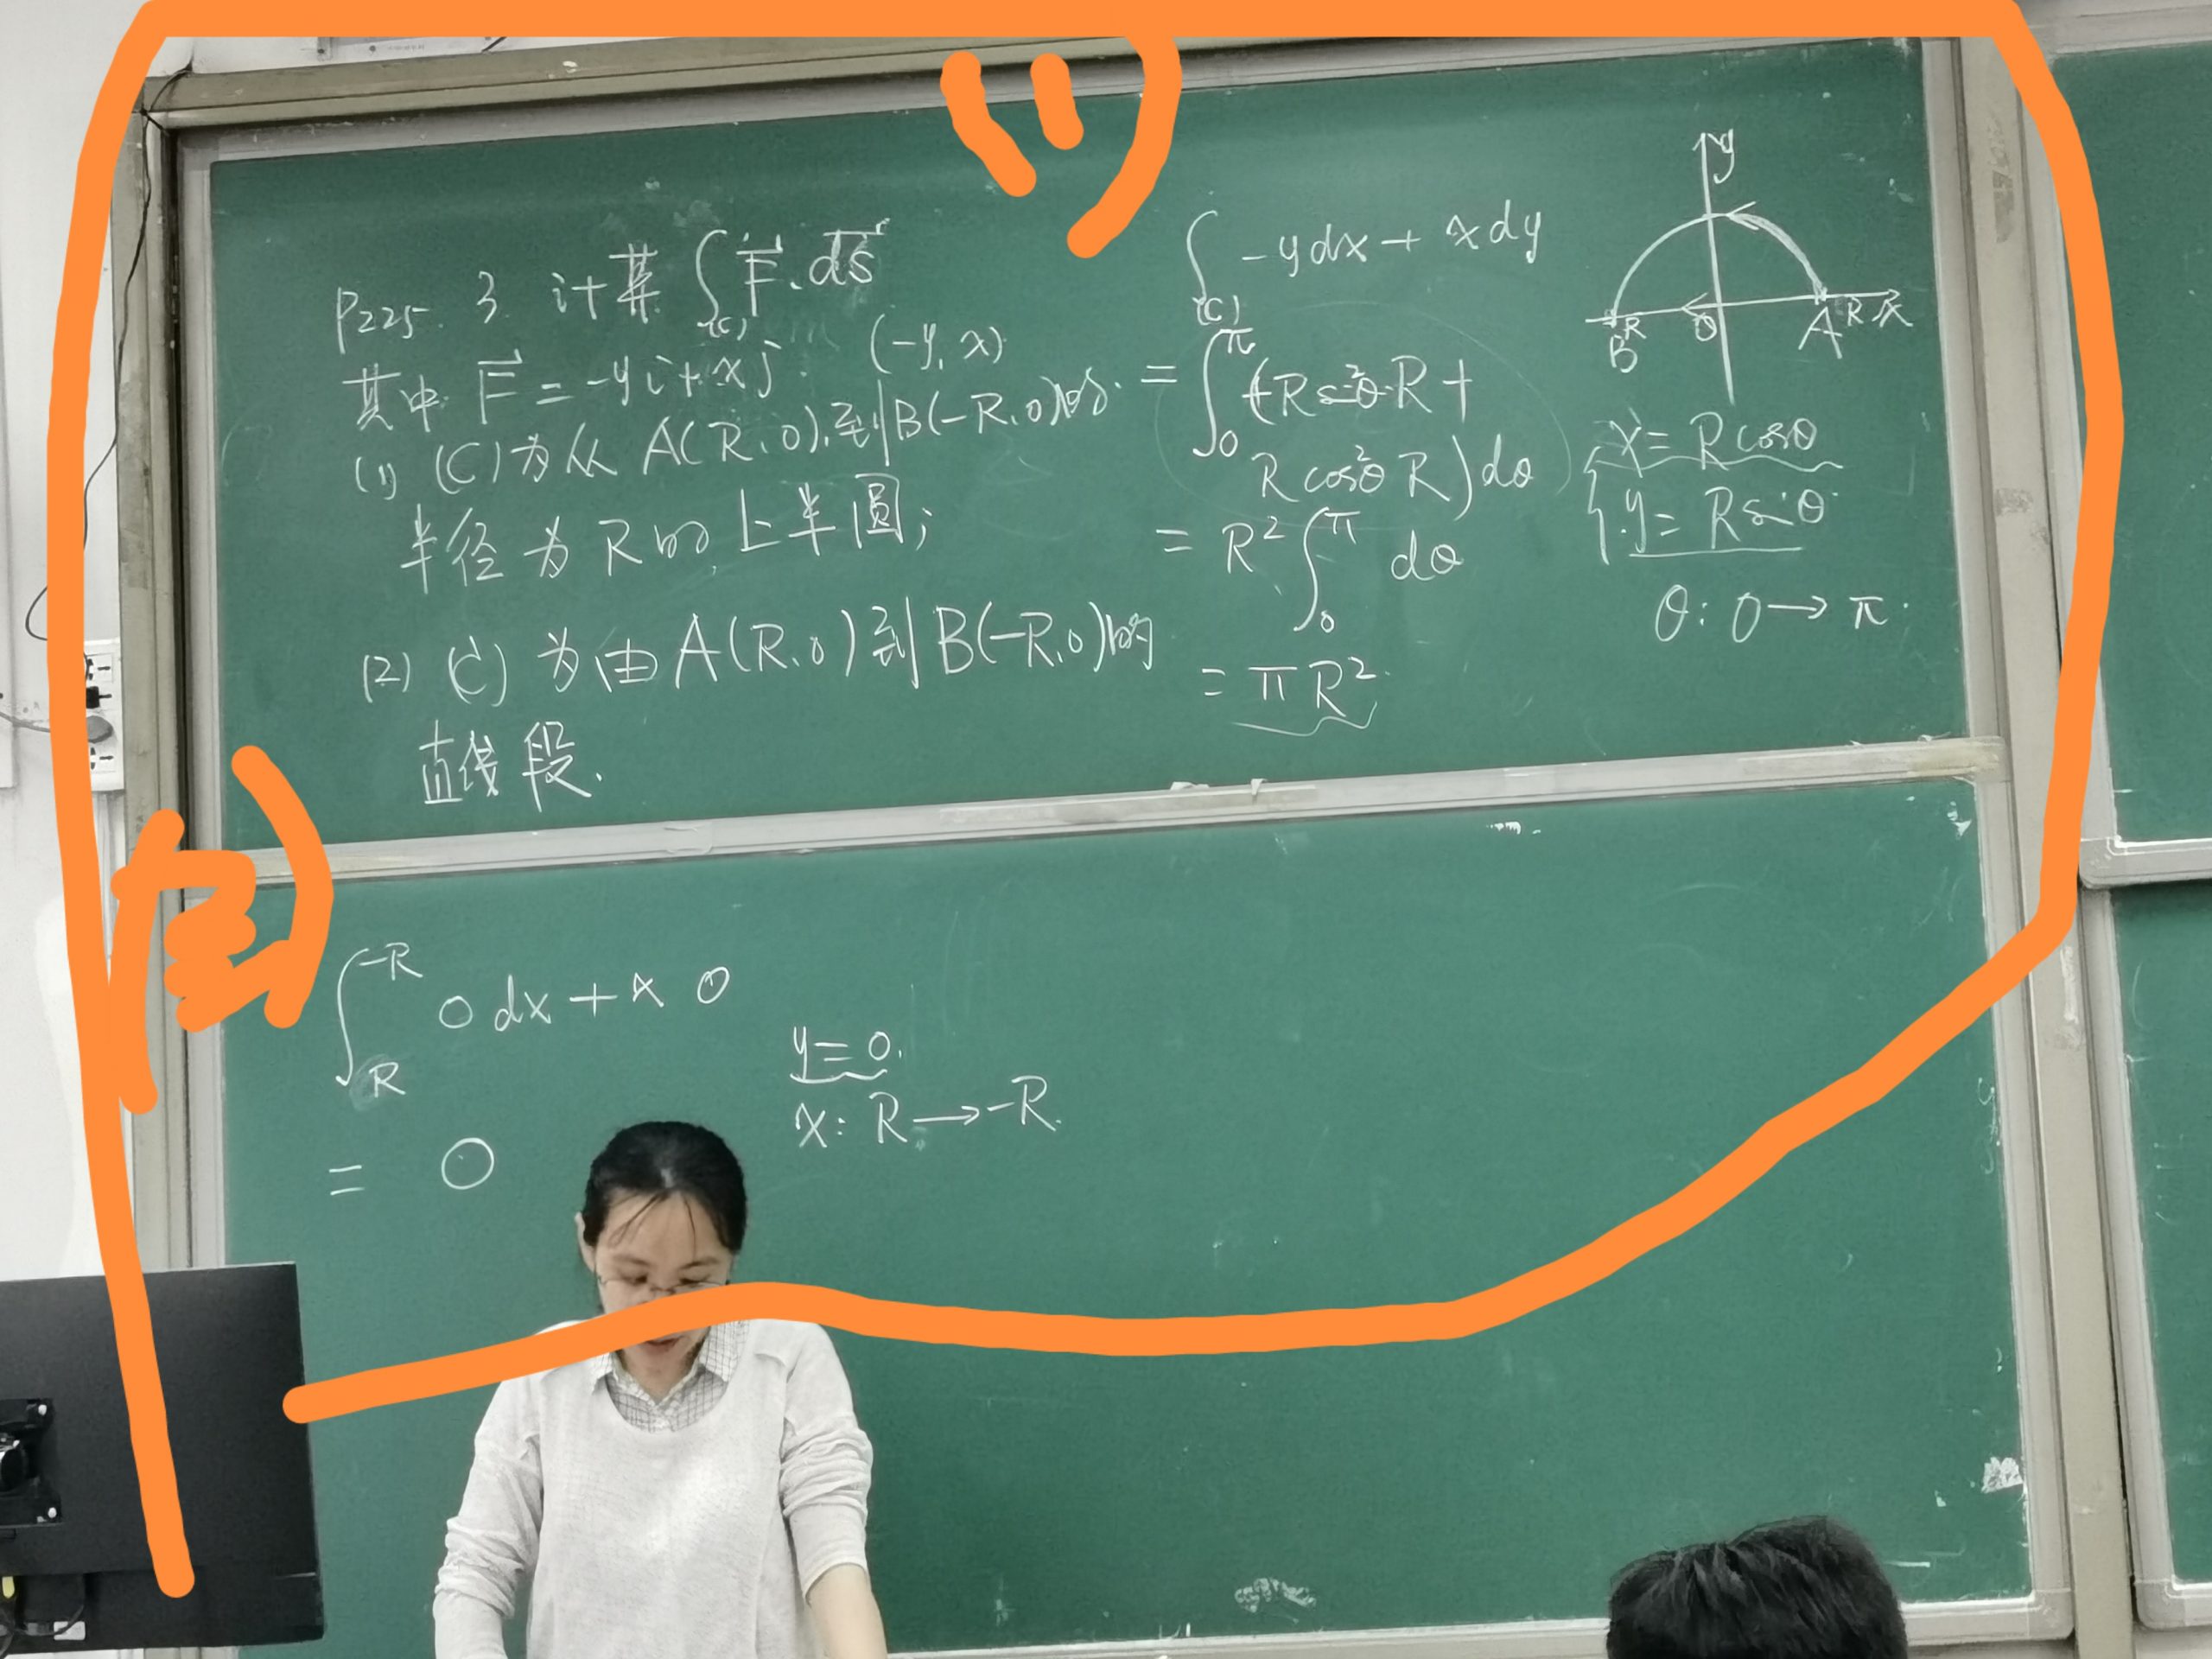 P225. 3. 计算 ∫(C) F⃗·ds⃗
其中 F⃗ = -yi + xj (-y, x)
(1) (C)为从 A(R,0)到B(-R,0)的
半径为R的上半圆;
(2) (C)为由A(R,0)到B(-R,0)的
直线段.
∫(C) -ydx + xdy
= ∫₀^π (+Rsin²θ·R +
Rcos²θ R)dθ
= R² ∫₀^π dθ
= πR²
y
B R O A R x
x = Rcosθ
y = Rsinθ
θ: 0 → π
(1)
(2)
∫_R^{-R} 0 dx + x 0
= 0
y = 0.
x: R → -R.